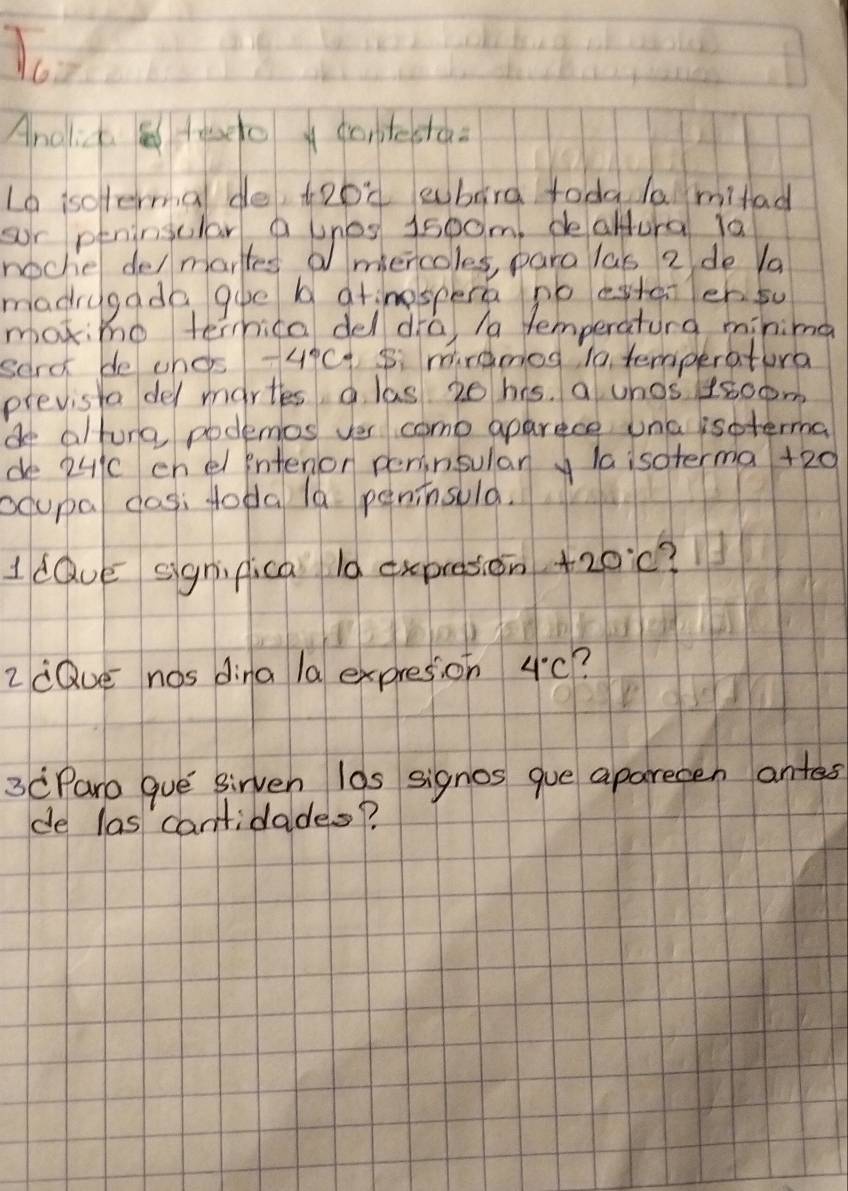 T6:-
Analiza el texto y contesta:
La isotermal de +20°c cubrira toda la mitad
sur peninsular a unos 1500m. de altura la
noche del martes al miercoles, para las 2 de la
madrugada que la atmospera no estar en su
maximo termica del dia, la temperatura minima
sera de unos -4°C. Si miramos la temperatura
prevista del martes a las 20 hrs. a unos 1500m
de altura, podemos ver como aparece una isoterma
de 24°C en el interior peninsular y la isoterma +20
ocupa casi toda la peninsula.
1 ¿Que significa la expresion +20°c?
2 ¿Qué nos dira la expresion 4°c?
3 ¿Para qué sirven los signos que aparecen antes
de las cantidades?